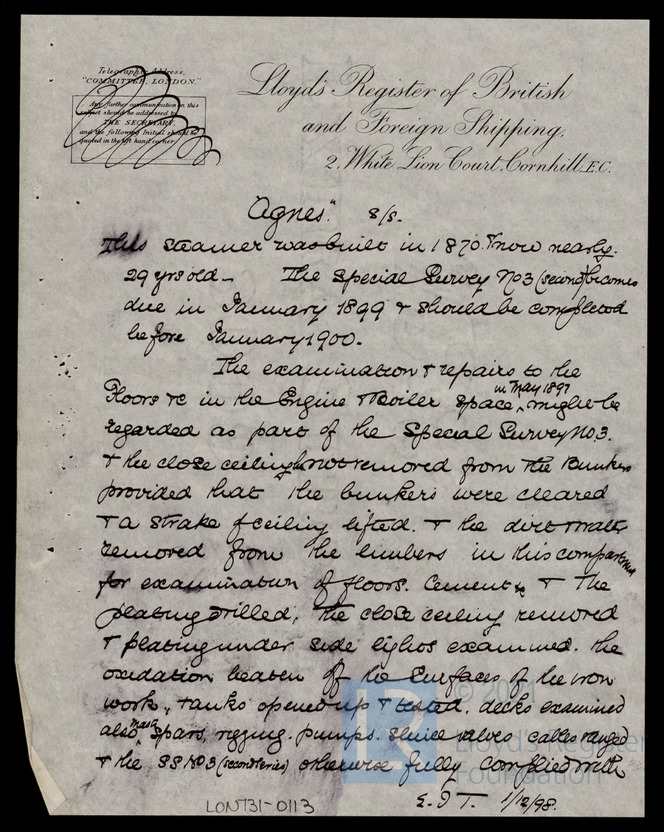 Telegraphic Address,
"COMMITTEE, LONDON."
Any further communication on this
subject should be addressed to
THE SECRETARY,
and the following Initial should be
quoted in the left hand corner.
Lloyd's Register of British
and Foreign Shipping,
2, White Lion Court, Cornhill, E.C.
"Agnes" S/S.
This steamer was built in 1870. & now nearly
29 yrs old - The Special Survey No3 (second) becomes
due in January 1899 & should be completed
before January 1900.
The examination & repairs to the
Floors &c in the Engine & Boiler space in May 1897 might be
regarded as part of the Special Survey No3.
& the close ceiling not removed from the Bunkers
provided that the bunkers were cleared
& a strake of ceiling lifted. & the dirt
removed from the limbers in this compartment
for examination of floors. Cement & & The
plating drilled, the close ceiling removed
& plating under side lights examined. the
oxidation beaten off the surfaces of the iron
work, tanks opened up & tested. decks examined
also masts, spars, rigging. pumps. sluice valves cables ranged
& the SS No3 (second series) otherwise fully complied with
E.J.T. 1/12/98.
LONT31-0113
LR
© 2021
Lloyd's Register
Foundation